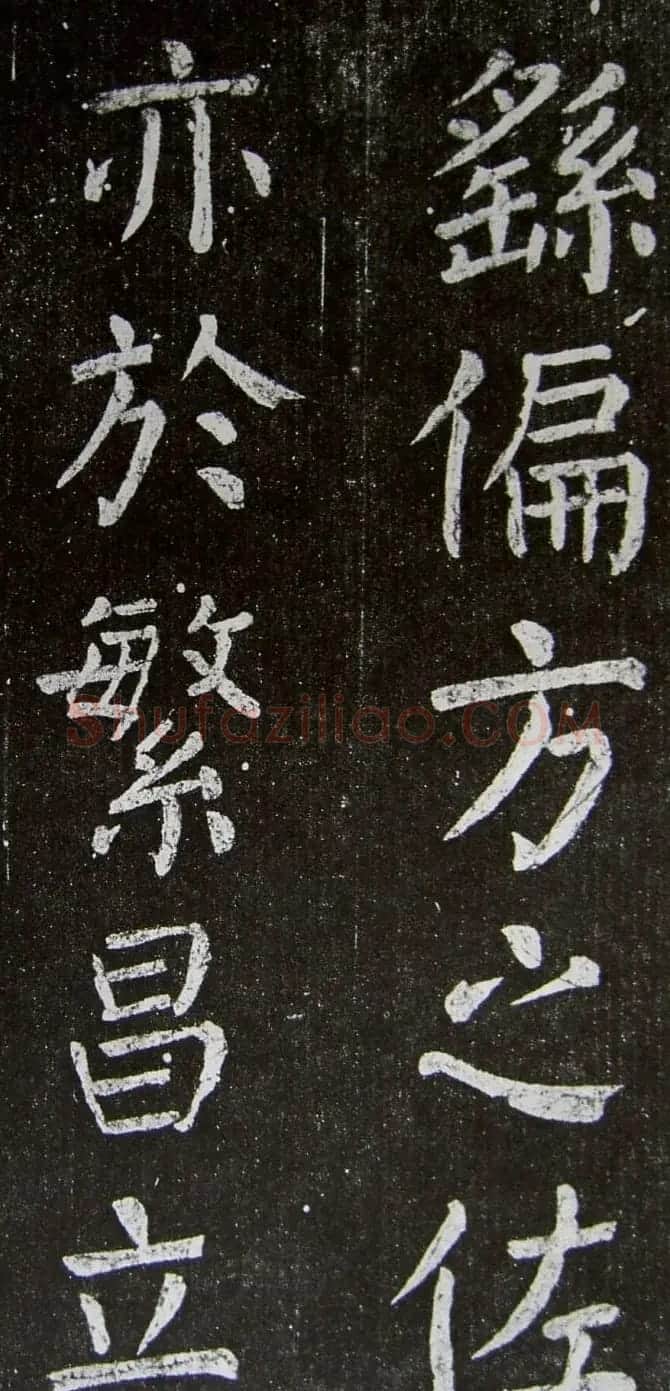 繇偏方之佐
亦於繁昌立
Shufaziliao.COM